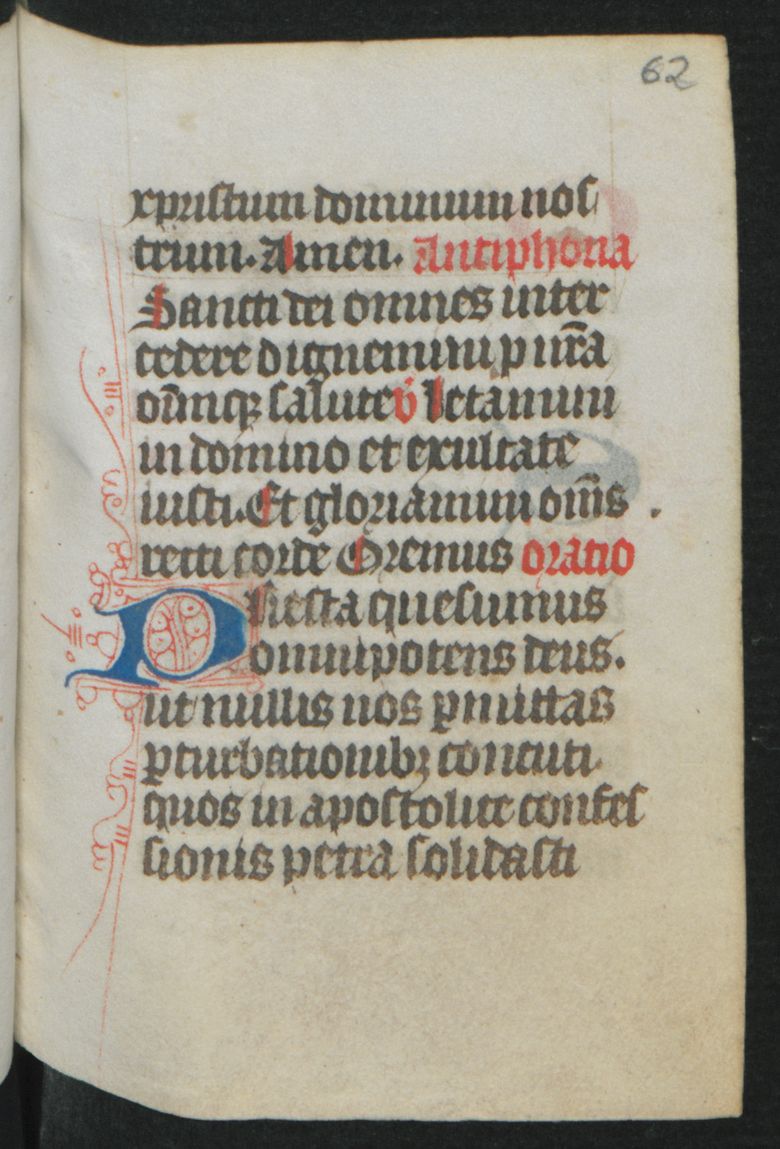 62
xpristum dominum nos
trum. Amen. Antiphona
Sancti dei omnes inter
cedere dignemini p nr̄a
om̄niq; salute v̓ letamini
in domino et exultate
iusti. Et gloriamini om̄s
recti corde Oremus oratio
Presta quesumus
omnipotens deus.
ut nullis nos ꝑmittas
ꝑturbationibꝫ concuti
quos in apostolice confes
sionis petra solidasti